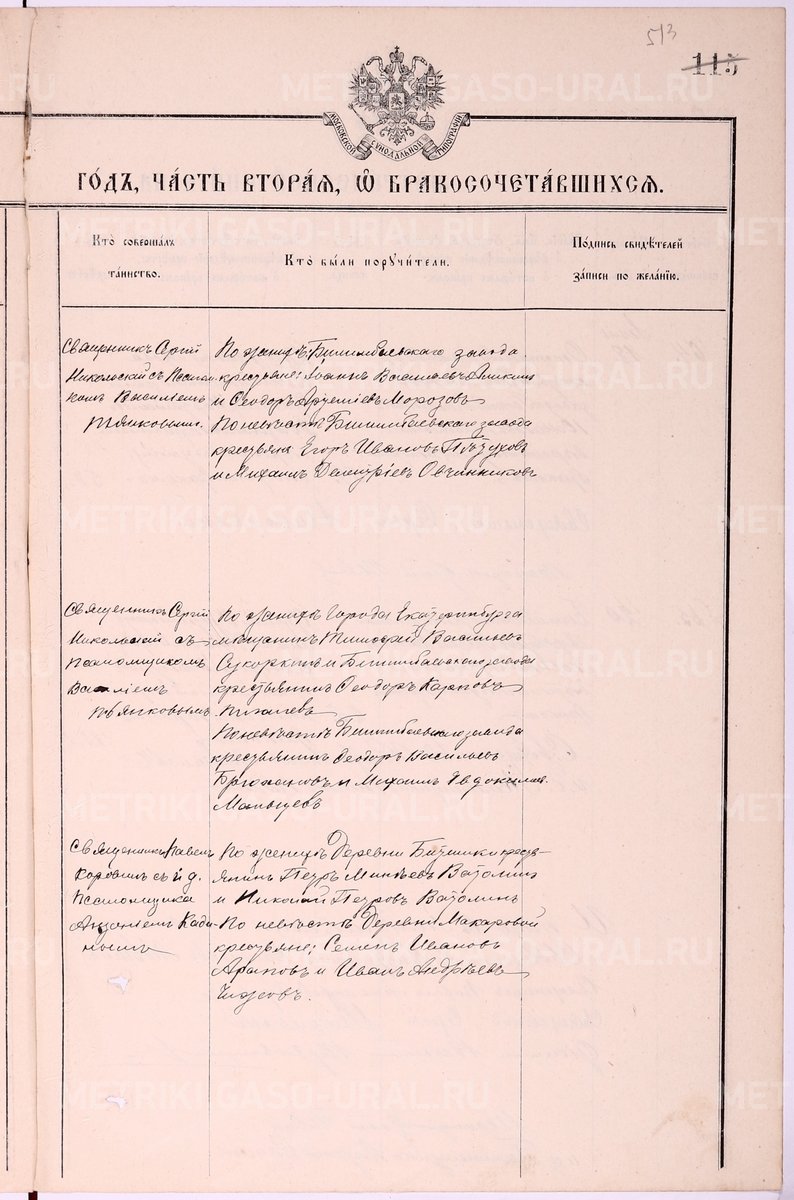 513
115
МОСКОВСКОЙ СѴНОДАЛЬНОЙ ТИПОГРАФІИ
ГО́ДЪ, ЧА́СТЬ ВТОРА́Я, Ѽ БРАКОСОЧЕТА́ВШИХСЯ.
Кто̀ соверша́лъ
та́инство.
Кто̀ бы́ли порꙋчи́тели.
По́дпись свидѣ́телей
за́писи по жела́нїю.
Священникъ Сергій
Никольскій съ Псалом-
комъ Василіемъ
Пьянковымъ.
По женихѣ: Билимбаевскаго завода
крестьяне: Іоаннъ Васильевъ
и Ѳеодоръ Артеміевъ Морозовъ
По невѣстѣ Билимбаевскаго завода
крестьяне Егоръ Ивановъ Пѣтуховъ
и Михаилъ Димитріевъ Овчинниковъ
Священникъ Сергій
Никольскій съ
псаломщикомъ
Василіемъ
Пьянковымъ
По женихѣ города Екатеринбурга
мѣщанинъ Тимофей Васильевъ
Сукоркинъ и Билимбаевскаго завода
крестьянинъ Ѳеодоръ Карповъ
По невѣстѣ Билимбаевскаго завода
крестьянинъ Ѳеодоръ Васильевъ
и Михаилъ Евдокимовъ
Мальцевъ
Священникъ Павелъ
Коровинъ съ и. д.
Псаломщика
Кади-
нымъ
По женихѣ Деревни Битимки кресть-
янинъ Петръ Минѣевъ Ватолинъ
и Николай Петровъ Ватолинъ
По невѣстѣ Деревни Макаровой
крестьяне: Семенъ Ивановъ
Араповъ и Иванъ Андреевъ
Чижовъ.
METRIKI.GASO-URAL.RU